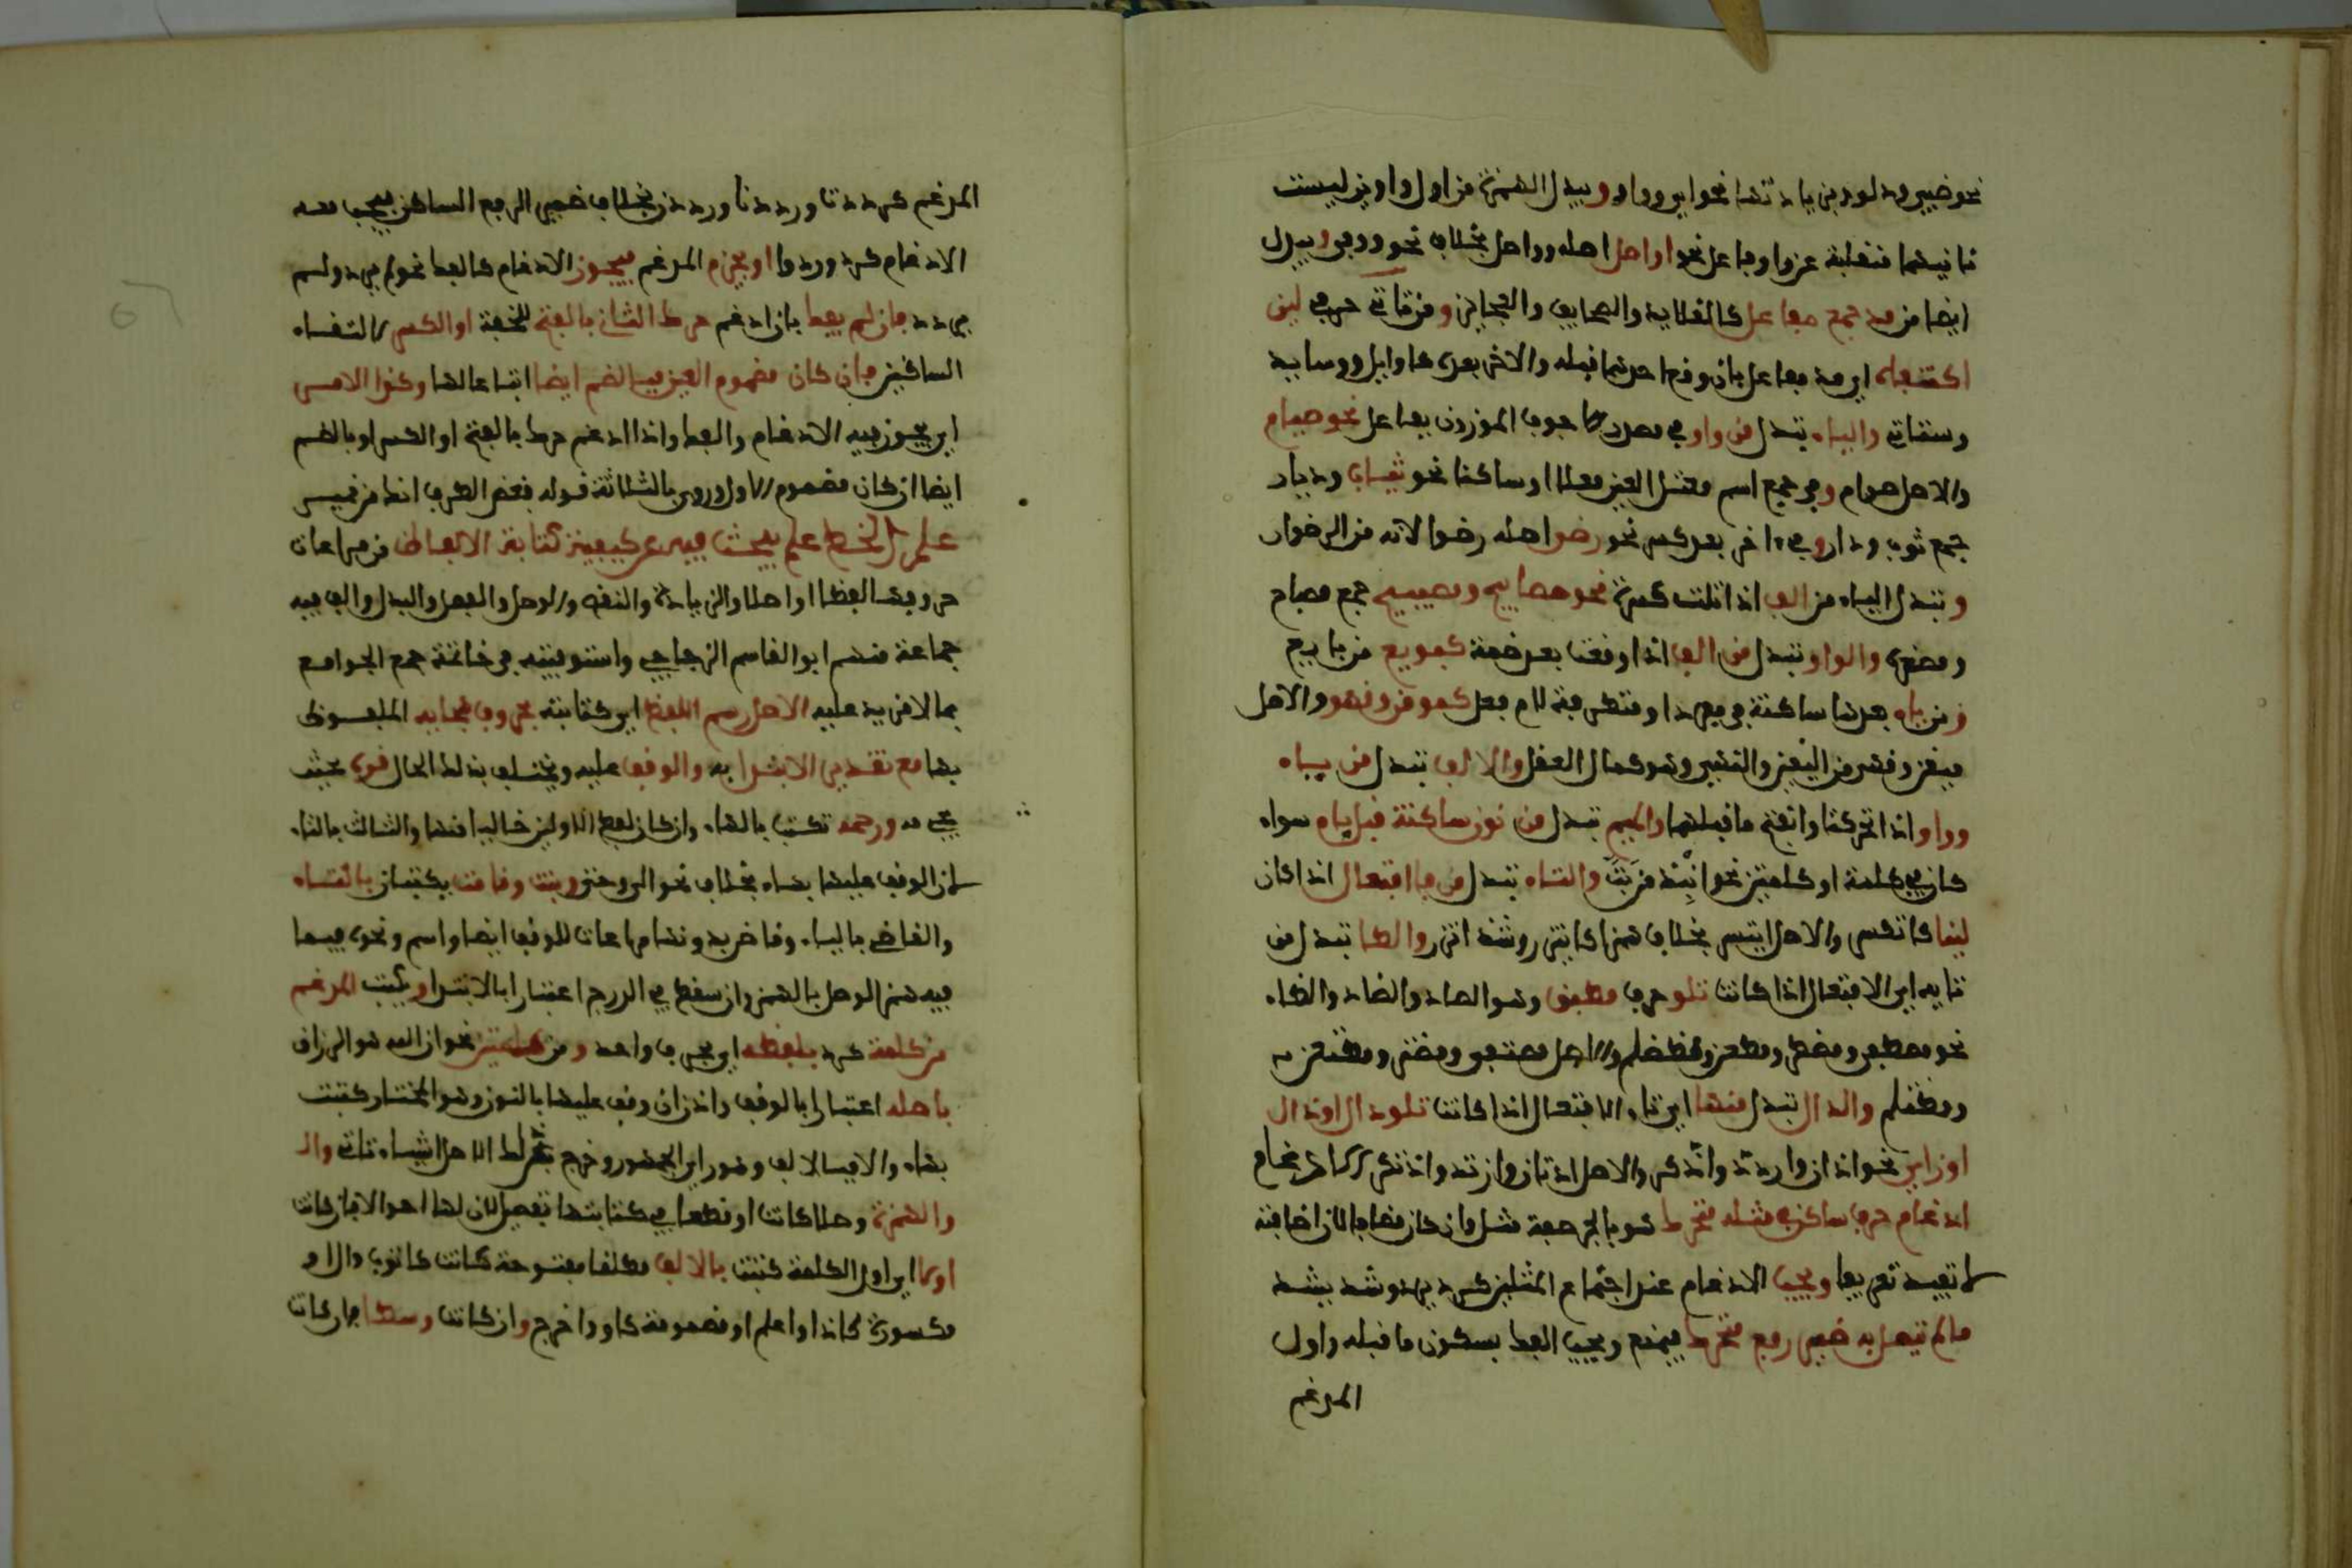 ثانيتهما منقلبة عن واو فاعل نحو اواصل اصله وواصل بخلاف نحو ووفى ويبدل
ايضا من مد جمع مفاعل كالقلايد والصحايف والعجايز ومن ثاني حرفي لين
اكتنفا اي مد مفاعل بان وقع احدهما قبله والاخر بعده كاوايل وسيايد
والياء تبدل من واو في مصدر اجوف الموزون بفعال نحو صيام
والاصل صوام وفي جمع اسم معتل العين معلا او ساكنا نحو ثياب وديار
جمع ثوب ودار وفي اخر بعد كسر نحو رضي اصله رضو لانه من الرضوان
وتبدل الياء من الف اذا تلت كسرة نحو مصابيح ومصيبيح جمع مصباح
ومصغره والواو تبدل من الف اذا وقعت بعد ضمة كبويع من بايع
ومن ياء بعدها ساكنة في مفرد او متطرفة لام فعل كموقن ونهو والاصل
ميقن ونهي من اليقين والنهي وهو كمال العقل والالف تبدل من ياء
وواو اذا تحركتا وانفتح ما قبلهما والميم تبدل من نون ساكنة قبل باء سواء
كان في كلمة او كلمتين نحو انبذ من بت والتاء تبدل من فا افتعال اذا كان
لينا كاتسر والاصل ايتسر بخلاف همز كايتزر وشذ اتزر والطا تبدل من
تايه اي الافتعال اذا كانت تلو حرف مطبق وهو الصاد والضاد والطاء
نحو مصطفى ومضطر ومطعن ومظطلم والاصل مصتفى ومضتر ومطتعن
ومظتلم والدال تبدل منها اي تاء الافتعال اذا كانت تلو دال او ذال
او زاي نحو ادان وازدد واذكر والاصل ادتان وازتد واذتكر الادغام
ادغام حرف ساكن في مثله متحرك هو بالجر صفة مثل وان كان مضافا لان اضافته
لا تفيد تعريفا ويجب الادغام عند اجتماع المثلين كرد يرد وشد يشد
مالم يتصل به ضمير رفع متحرك فيمتنع ويجب الفك بسكون ما قبله واول
المدغم
المدغم كرددتا ورددنا ورددن بخلاف ضمير الرفع الساكن فيجب معه
الادغام كردا وردوا او يجزم المدغم فيجوز الادغام كالفك نحو لم يرد ولم
يردد فان لم يفك بان ادغم حرك الثاني بالفتح للخفة او الكسر لالتقاء
الساكنين فان كان مضموم العين فبالضم ايضا اتباعا لها وكذا الامر
اي يجوز فيه الادغام والفك واذا ادغم حرك بالفتح او الكسر او بالضم
ايضا ان كان مضموم الاول وروي بالثلاثة قوله فغض الطرف انك من نمير
علم الخط علم يبحث فيه عن كيفية كتابة الالفاظ من مراعاة
حروفها لفظا او اصلا والزيادة والنقص والوصل والفصل والبدل والف فيه
جماعة منهم ابو القاسم الزجاجي واستوفيته في خاتمة جمع الجوامع
بما لا مزيد عليه الاصل رسم اللفظ اي كتابته بحروف هجايه الملفوظ
بها مع تقدير الابتدا به والوقف عليه ويختلف بذلك الحال فره بحيث
مه ورحمه تكتب بالهاء وان كان لفظ الاولين خاليا منها والثالث بالتاء
لان الوقف عليها بهاء بخلاف نحو الرحمن وبنت وقامت يكتبان بالتاء
والقاضي بالياء وقاض بدونها مراعات للوقف ايضا واسم ونحوه مما
فيه همز الوصل بالهمز وان سقط في الدرج اعتبارا بالابتدا ويكتب المدغم
من كلمة كرد بلفظه اي بحرف واحد ومن كلمتين نحو ان الله هو الرزاق
باصله اعتبارا بالوقف واذن ان وقف عليها بالنون وهو المختار كتبت
بهاء والا فبالالف وهو راي الجمهور
والهمزة وصلا كانت او قطعا في كتابتها تفصيل لان لها احوالا فان كانت
اولا اي اول الكلمة كتبت بالالف مطلقا مفتوحة كانت كايوب او
مكسورة كاذا واعلم او مضمومة كاو واخرج وان كانت وسطا فان كانت